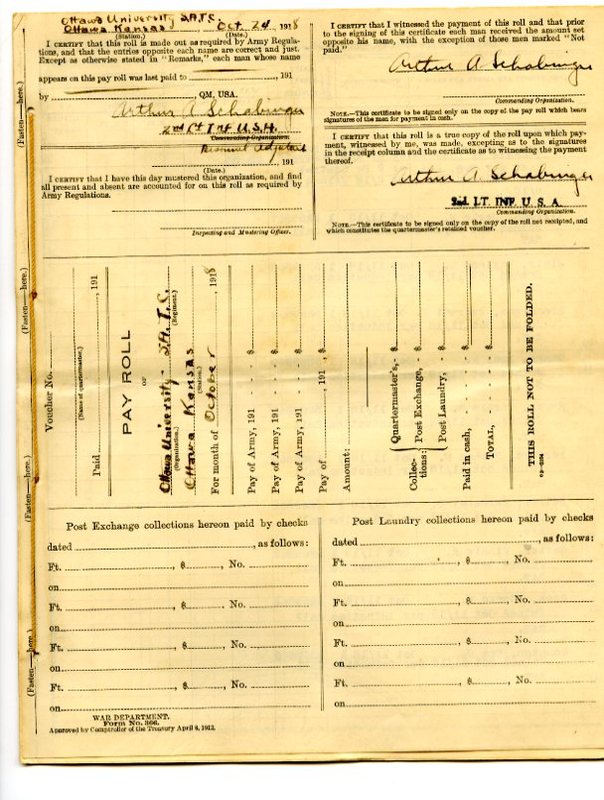 Ottawa University S.A.T.C.
Ottawa Kansas Oct 24 1918
(Station.) (Date.)
I CERTIFY that this roll is made out as required by Army Regula-
tions, and that the entries opposite each name are correct and just.
Except as otherwise stated in "Remarks," each man whose name
appears on this pay roll was last paid to , 191
by , QM, USA.
Arthur A Schabinger
2nd Lt Inf U.S.A.
Commanding Organization.
Personnel Adjutant
, 191
(Date.)
I CERTIFY that I have this day mustered this organization, and find
all present and absent are accounted for on this roll as required by
Army Regulations.
Inspecting and Mustering Officer.
I CERTIFY that I witnessed the payment of this roll and that prior
to the signing of this certificate each man received the amount set
opposite his name, with the exception of those men marked "Not
paid."
Arthur A Schabinger
Commanding Organization.
NOTE.—This certificate to be signed only on the copy of the pay roll which bears
signatures of the men for payment in cash.
I CERTIFY that this roll is a true copy of the roll upon which pay-
ment, witnessed by me, was made, excepting as to the signatures
in the receipt column and the certificate as to witnessing the payment
thereof.
Arthur A Schabinger
2nd. LT. INF. U. S. A.
Commanding Organization.
NOTE.—This certificate to be signed only on the copy of the roll not receipted, and
which constitutes the quartermaster's retained voucher.
(Fasten—here.)
(Fasten—here.)
(Fasten—here.)
(Fasten—here.)
Voucher No.
(Name of quartermaster.)
Paid , 191
PAY ROLL
OF
Ottawa University S.A.T.C.
(Organization.) (Regiment.)
Ottawa Kansas
(Station.)
For month of October , 1918
Pay of Army, 191 $
Pay of Army, 191 - - - $
Pay of Army, 191 - - - $
Pay of , 191 , $
Amount:
Collec-
tions:
Quartermaster's, - $
Post Exchange, - $
Post Laundry, - $
Paid in cash, - - - - - $
TOTAL, - - - $
THIS ROLL NOT TO BE FOLDED.
Post Exchange collections hereon paid by checks
dated , as follows:
Ft. , $ , No.
on
Ft. , $ , No.
on
Ft. , $ , No.
on
Ft. , $ , No.
on
WAR DEPARTMENT.
Form No. 366.
Approved by Comptroller of the Treasury April 8, 1912.
Post Laundry collections hereon paid by checks
dated , as follows:
Ft. , $ , No.
on
Ft. , $ , No.
on
Ft. , $ , No.
on
Ft. , $ , No.
on